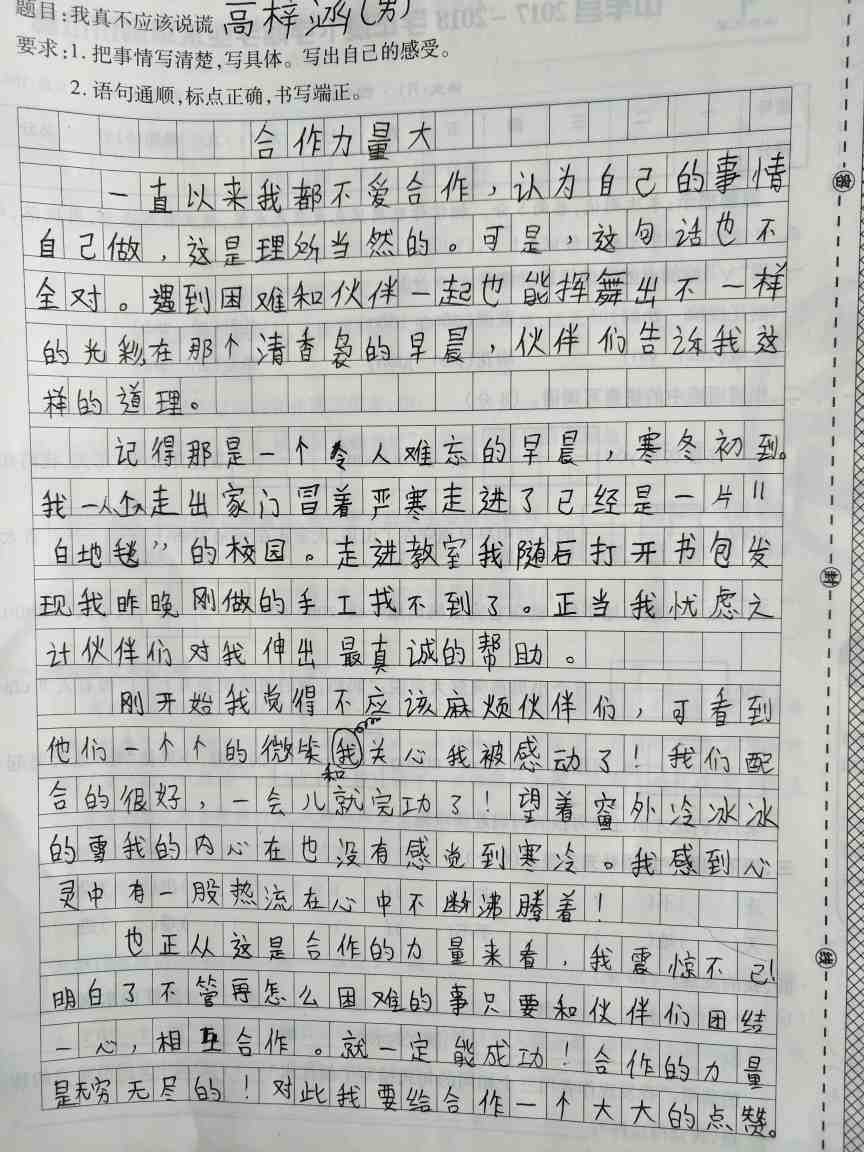 题目:我真不应该说谎 高梓涵(男)
要求:1. 把事情写清楚,写具体。写出自己的感受。
2. 语句通顺,标点正确,书写端正。
合作力量大
一直以来我都不爱合作，认为自己的事情
自己做，这是理所当然的。可是，这句话也不
全对。遇到困难和伙伴一起也能挥舞出不一样
的光彩在那个清香袅的早晨，伙伴们告诉我这
样的道理。
记得那是一个令人难忘的早晨，寒冬初到。
我一人个人走出家门冒着严寒走进了已经是一片“
白地毯”的校园。走进教室我随后打开书包发
现我昨晚刚做的手工找不到了。正当我忧虑之
计伙伴们对我伸出最真诚的帮助。
刚开始我觉得不应该麻烦伙伴们，可看到
他们一个个的微笑和关心我被感动了！我们配
合的很好，一会儿就完功了！望着窗外冷冰冰
的雪我的内心在也没有感觉到寒冷。我感到心
灵中有一股热流在心中不断沸腾着！
也正从这是合作的力量来看，我震惊不已!
明白了不管再怎么困难的事只要和伙伴们团结
一心，相互合作。就一定能成功！合作的力量
是无穷无尽的！对此我要给合作一个大大的点赞。
密
封